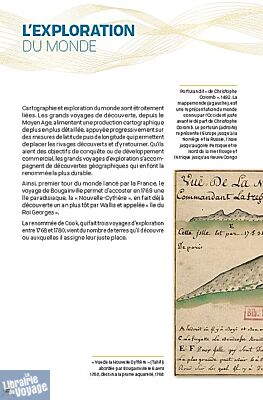 L'EXPLORATION
DU MONDE
Cartographie et exploration du monde sont étroitement
liées. Les grands voyages de découverte, depuis le
Moyen Age alimentent une production cartographique
de plus en plus détaillée, appuyée progressivement sur
des mesures de latitude puis de longitude qui permettent
de placer les rivages découverts et d'y retourner. Qu'ils
aient des objectifs de conquête ou de développement
commercial, les grands voyages d'exploration s'accom-
pagnent de découvertes géographiques qui en font la
renommée la plus durable.
Ainsi, premier tour du monde lancé par la France, le
voyage de Bougainville permet d'accoster en 1768 une
île paradisiaque, la « Nouvelle-Cythère », en fait déjà
découverte un an plus tôt par Wallis et appelée « île du
Roi Georges ».
La renommée de Cook, qui fait trois voyages d'exploration
entre 1768 et 1780, vient du nombre de terres qu'il découvre
ou auxquelles il assigne leur juste place.
Portulan dit « de Christophe
Colomb », 1492. La
mappemonde (à gauche), est
une représentation du monde
connu par l'Occident juste
avant le départ de Christophe
Colomb. Le portulan (à droite)
représente l'Europe jusqu'à la
Norvège et la Russie, l'Asie
jusqu'au golfe Persique et le
Nord de la mer Rouge et
l'Afrique jusqu'au fleuve Congo
Vuë De La N
Commandant La freg
De paris
« Vue de la Nouvelle Cythère » (Tahiti)
abordée par Bougainville le 6 avril
1768, dessin à la plume aquarellé, 1768
La Librairie
du Voyage